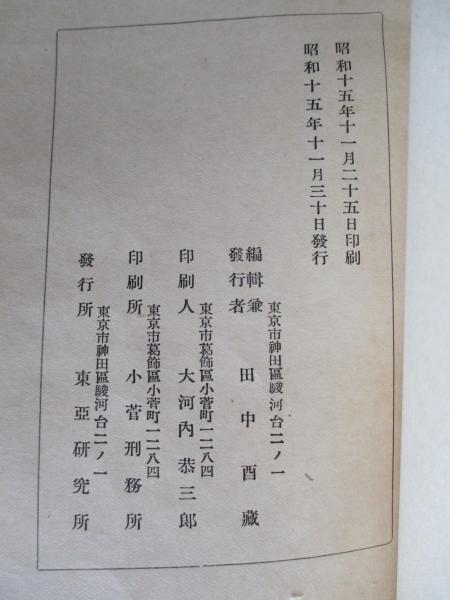 昭和十五年十一月二十五日印刷
昭和十五年十一月三十日發行
東京市神田區駿河台二ノ一
編輯兼
發行者 田中酉藏
東京市葛飾區小菅町一二八四
印刷人 大河內恭三郎
東京市葛飾區小菅町一二八四
印刷所 小菅刑務所
東京市神田區駿河台二ノ一
發行所 東亞硏究所